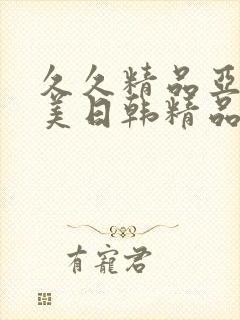 久久精品亚
美日韩精品
有宠君